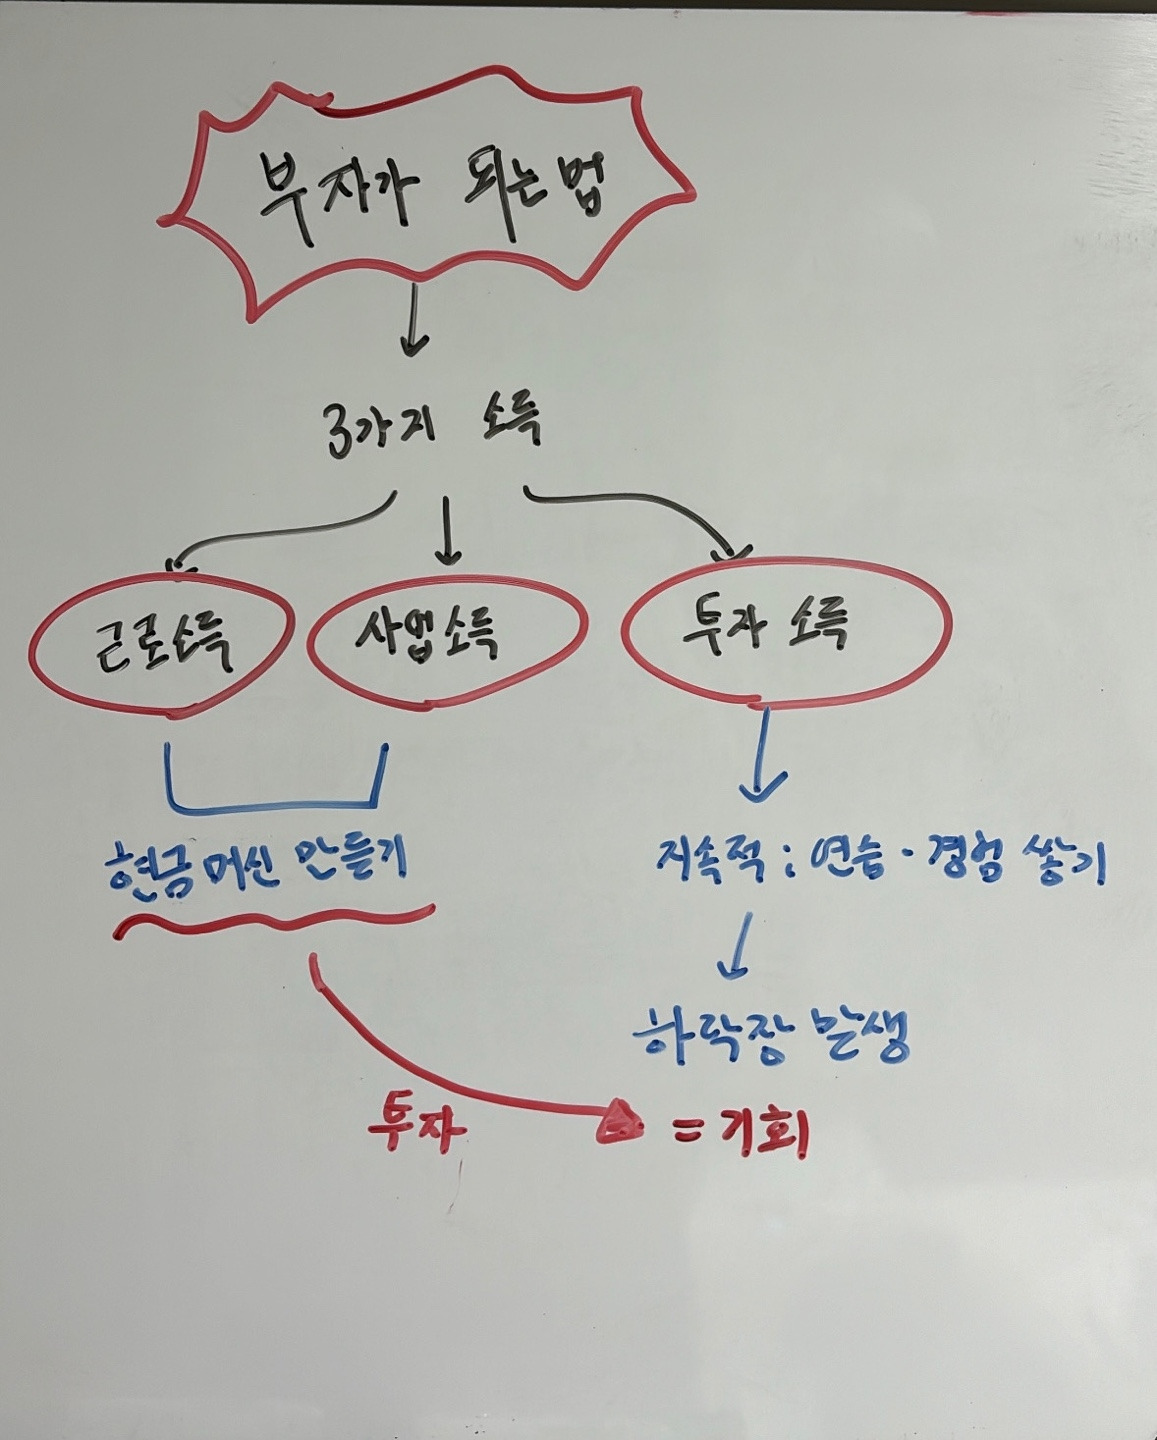 부자가 되는법
3가지 소득
근로소득 사업소득 투자 소득
현금머신 만들기 지속적 : 연습 · 경험 쌓기
하락장 발생
투자 = 기회